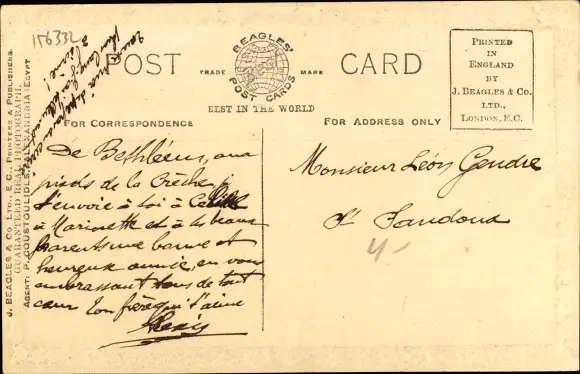 156332
POST CARD
BEAGLES'
POST CARDS
TRADE MARK
BEST IN THE WORLD
PRINTED
IN
ENGLAND
BY
J. BEAGLES & CO.
LTD.,
LONDON, E.C.
FOR CORRESPONDENCE
FOR ADDRESS ONLY
J. BEAGLES & CO., LTD., E.C., PRINTERS & PUBLISHERS.
GUARANTEED REAL PHOTOGRAPH.
AGENT: P. COUSTOULIDES, ALEXANDRIA, EGYPT
De Bethléem, aux
pieds de la Crèche, je
t'envoie à toi à Cécile
à Mariette et à tes beaux
parents une bonne et
heureuse année, en vous
embrassant tous de tout
cœur Ton frère qui t'aime
Alexis
Monsieur Léon Gendre
St Pandoux
4-